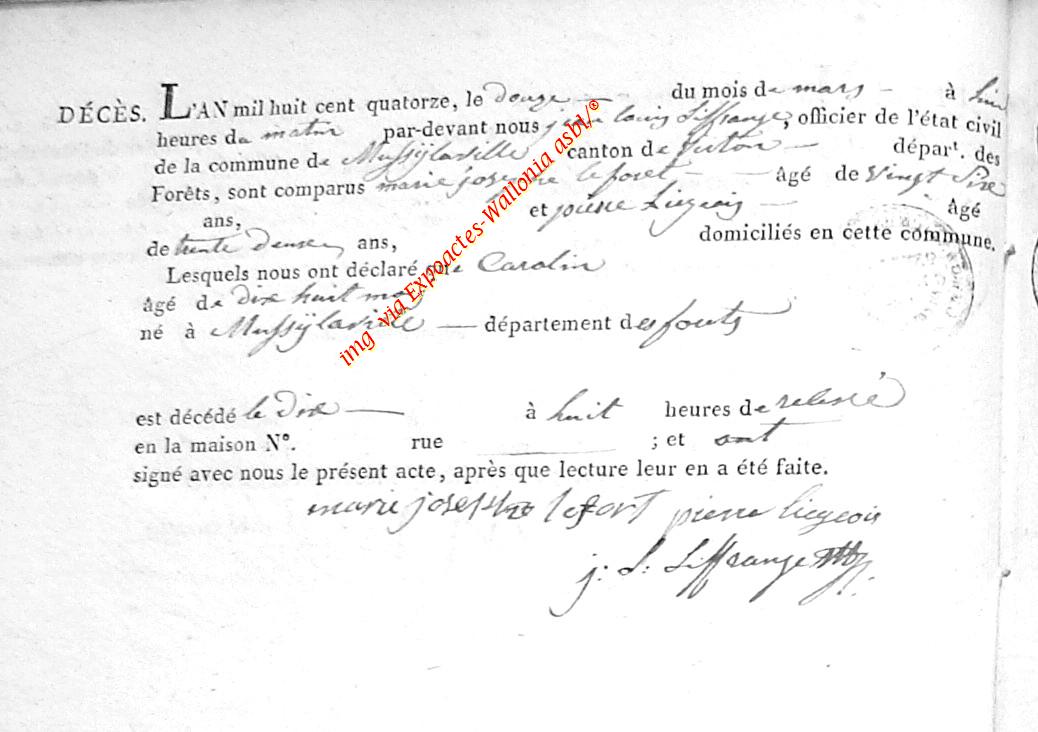 DÉCÈS. L'AN mil huit cent quatorze, le douze du mois de mars à
heures de matin par-devant nous louis Siffrange, officier de l'état civil
de la commune de Mussÿlaville canton de Virton départ. des
Forêts, sont comparus marie josephe leforet âgé de Vingt Six
ans, et pierre Liegeois âgé
de trente deux ans, domiciliés en cette commune.
Lesquels nous ont déclaré que Carolin
âgé de dix huit mois
né à Mussÿlaville département des
est décédé le dix à huit heures de relevé
en la maison N°. rue ; et ont
signé avec nous le présent acte, après que lecture leur en a été faite.
marie josephe lefort pierre liegeois
j: L: Siffrange
img via Expoactes-Wallonia asbl/©